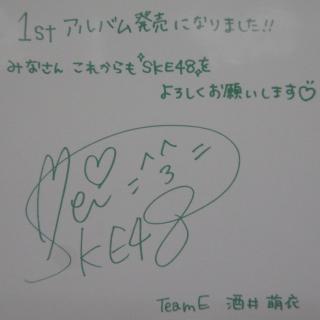 1st アルバム発売になりました!!
みなさん これからも"SKE48"を
よろしくお願いします♡
Mei
SKE48
TeamE 酒井 萌衣